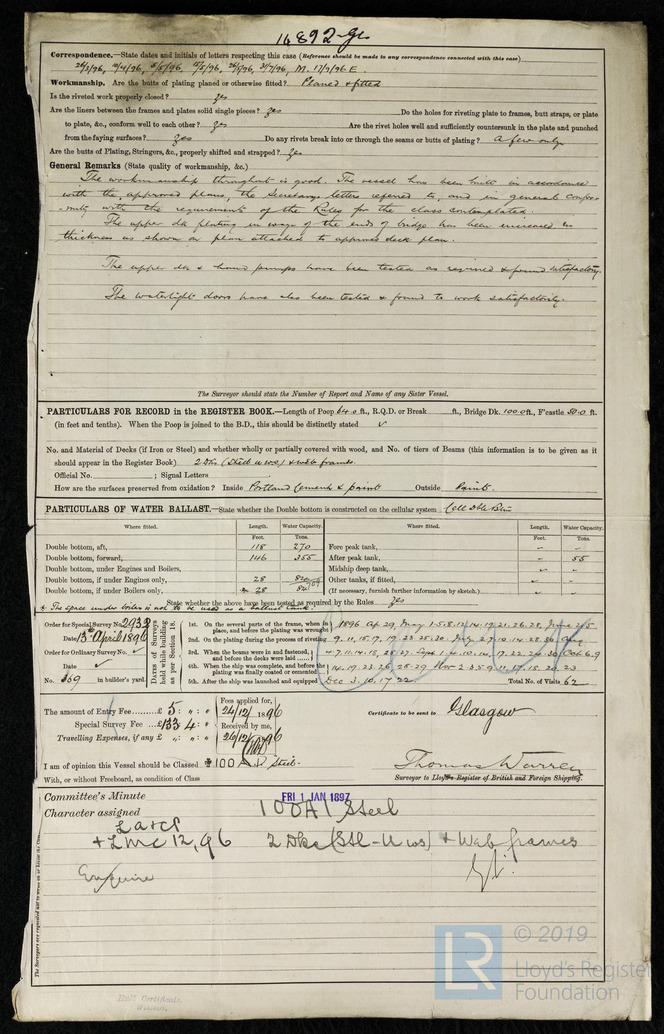 16892 Gls
Correspondence.—State dates and initials of letters respecting this case (Reference should be made to any correspondence connected with this case)
M. 17/9/96 E
Workmanship. Are the butts of plating planed or otherwise fitted? Planed & fitted
Is the riveted work properly closed? yes
Are the liners between the frames and plates solid single pieces? yes Do the holes for riveting plate to frames, butt straps, or plate
to plate, &c., conform well to each other? yes Are the rivet holes well and sufficiently countersunk in the plate and punched
from the faying surfaces? yes Do any rivets break into or through the seams or butts of plating? A few only
Are the butts of Plating, Stringers, &c., properly shifted and strapped? yes
General Remarks (State quality of workmanship, &c.)
The workmanship throughout is good. The vessel has been built in accordance
with the approved plans, the Secretarys letters referred to, and in general confor-
-mity with the requirements of the Rules for the class contemplated.
The upper dk plating in way of the ends of bridge has been increased in
thickness as shown on plan attached to approved deck plan.
The upper dk & hand pumps have been tested as required & found satisfactory.
The watertight doors have also been tested & found to work satisfactorily.
The Surveyor should state the Number of Report and Name of any Sister Vessel.
PARTICULARS FOR RECORD in the REGISTER BOOK.—Length of Poop 64.0 ft., R.Q.D. or Break ft., Bridge Dk. 100.0 ft., F'castle 50.0 ft.
(in feet and tenths). When the Poop is joined to the B.D., this should be distinctly stated ✓
No. and Material of Decks (if Iron or Steel) and whether wholly or partially covered with wood, and No. of tiers of Beams (this information is to be given as it
should appear in the Register Book) 2 Dks (Steel U ws) & web frames.
Official No. ; Signal Letters
How are the surfaces preserved from oxidation? Inside Portland Cement & paint Outside Paint.
PARTICULARS OF WATER BALLAST.—State whether the Double bottom is constructed on the cellular system Cell Dble Bm
Where fitted. Length. Water Capacity. Where fitted. Length. Water Capacity.
Feet. Tons. Feet. Tons.
Double bottom, aft, 118 270 Fore peak tank,
Double bottom, forward, 146 355 After peak tank, 55
Double bottom, under Engines and Boilers, Midship deep tank,
Double bottom, if under Engines only, 28 Other tanks, if fitted,
Double bottom, if under Boilers only, 28 (If necessary, furnish further information by sketch.)
State whether the above have been tested as required by the Rules yes
* The space under boiler is not to be used as a ballast tank.
Order for Special Survey No. 2932
Date 15th April 1896
Order for Ordinary Survey No. ✓
Date ✓
No. 369 in builder's yard.
Dates of Surveys held while building as per Section 18.
1st. On the several parts of the frame, when in place, and before the plating was wrought 1896 Ap 29, May 1.5.8.12.14.19.21.26.28, June 2.5
2nd. On the plating during the process of riveting 9.11.15.17.19.23.25.30 July 2.7.10.14.28.30 Aug
3rd. When the beams were in and fastened, and before the decks were laid
4th. When the ship was complete, and before the plating was finally coated or cemented 14.19.23.26.28.29 Nov 2.3.5.9.11.17.18.20.23
5th. After the ship was launched and equipped Dec 3.10.17.22 Total No. of Visits 62
The amount of Entry Fee £ 5 : " : "
Special Survey Fee £ 133 4 : "
Travelling Expenses, if any £ " : " : "
Fees applied for, 24/12/1896
Received by me, 26/12/96
Certificate to be sent to Glasgow
I am of opinion this Vessel should be Classed 100A1 Steel.
With, or without Freeboard, as condition of Class
Thomas Warren
Surveyor to Lloyd's Register of British and Foreign Shipping.
Committee's Minute FRI 1 JAN 1897
Character assigned 100A1 Steel
LA&CP
+ LMC 12,96 2 Dks (Stl-U ws) & Web frames
The Surveyors are requested not to write on or below the
Hull Certificate.
Written.
LR © 2019
Lloyd's Register
Foundation